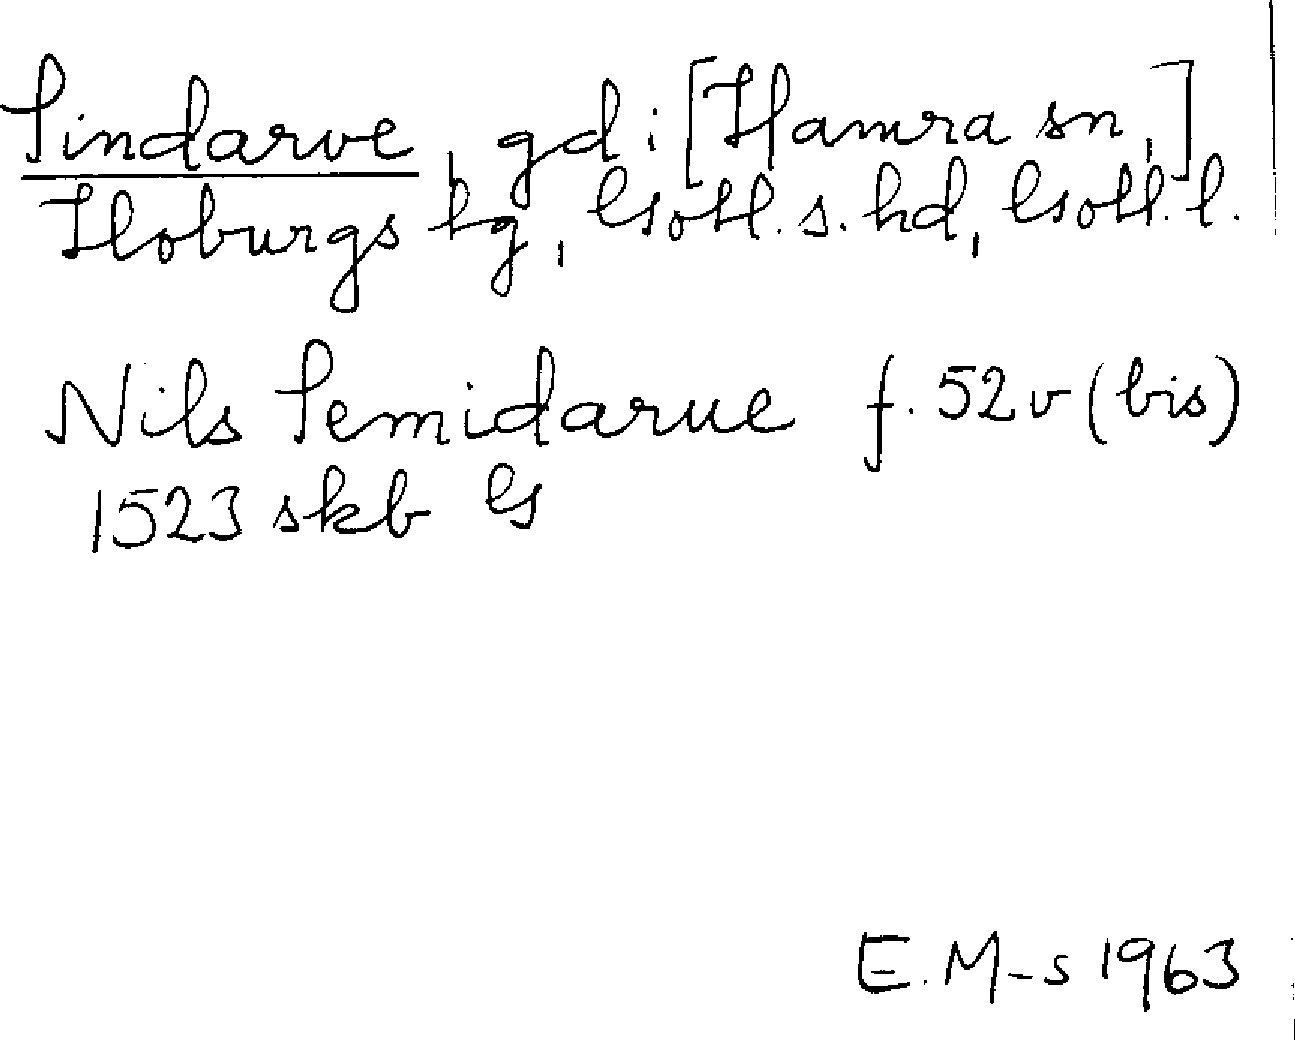 Sindarve, gd i [Hamra sn,]
Hoburgs tg, Gotl. s. hd, Gotl. l.
Nils Semidarue f. 52 v (bis)
1523 skb G
E. M-s 1963